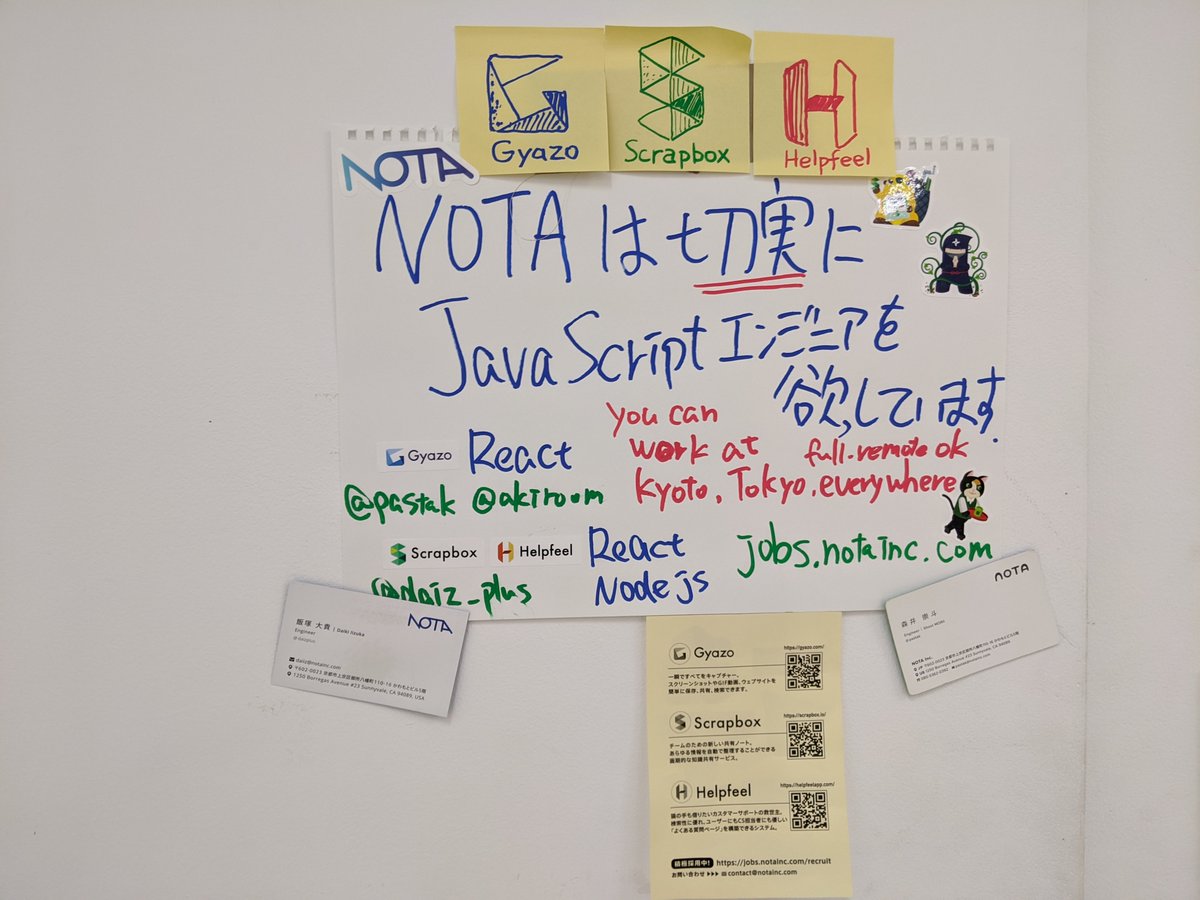 Gyazo
Scrapbox
Helpfeel
NOTA
NOTAは切実に
JavaScriptエンジニアを
欲しています
Gyazo React
@pastak @akiroom
you can
work at full-remote ok
kyoto, Tokyo, everywhere
Scrapbox Helpfeel React
Node js
@daiz_plus
jobs.notainc.com
NOTA
飯塚 大貴 | Daiki Iizuka
Engineer
@daizplus
daiz@notainc.com
〒602-0023 京都市上京区御所八幡町110-16 かわもとビル5階
1250 Borregas Avenue #23 Sunnyvale, CA 94089, USA
NOTA
森井 崇斗
Engineer
NOTA Inc.
Gyazo
https://gyazo.com/
一瞬ですべてをキャプチャー。
スクリーンショットやGIF動画、ウェブサイトを
簡単に保存、共有、検索できます。
Scrapbox
https://scrapbox.io/
チームのための新しい共有ノート。
あらゆる情報を自動で整理することができる
画期的な知識共有サービス。
Helpfeel
https://helpfeelapp.com/
猫の手も借りたいカスタマーサポートの救世主。
検索性に優れ、ユーザーにもCS担当者にも優しい
「よくある質問ページ」を構築できるシステム。
積極採用中! https://jobs.notainc.com/recruit
お問い合わせ ▶▶▶ contact@notainc.com